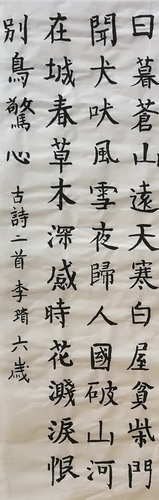 日暮蒼山遠天寒白屋貧柴門
聞犬吠風雪夜歸人國破山河
在城春草木深感時花濺淚恨
別鳥驚心 古詩二首李瑨六歲